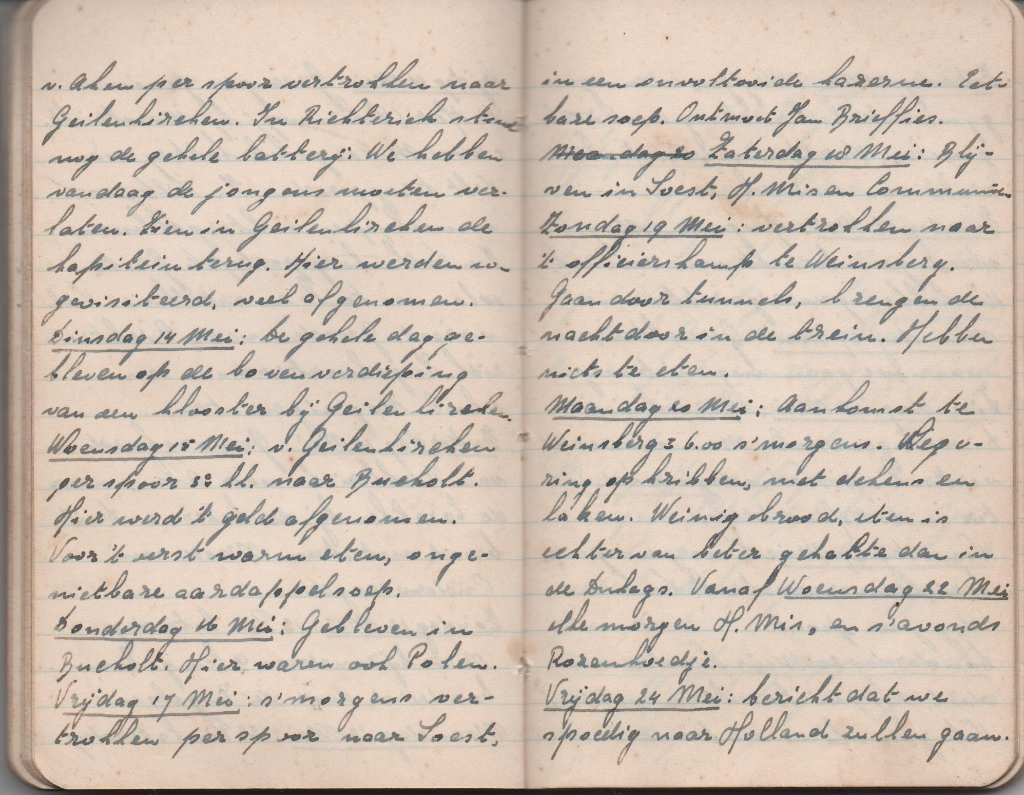 v. Aken per spoor vertrokken naar
Geilenkirchen. In Richterich stond
nog de gehele batterij. We hebben
vandaag de jongens moeten ver-
laten. Zien in Geilenkirchen de
kapitein terug. Hier werden we
gevisiteerd, veel afgenomen.
Dinsdag 14 Mei: De gehele dag ge-
bleven op de bovenverdieping
van een klooster bij Geilenkirchen.
Woensdag 15 Mei: v. Geilenkirchen
per spoor 3e kl. naar Bucholt.
Hier werd 't geld afgenomen.
Voor 't eerst warm eten, onge-
nietbare aardappelsoep.
Donderdag 16 Mei: Gebleven in
Bucholt. Hier waren ook Polen.
Vrijdag 17 Mei: s'morgens ver-
trokken per spoor naar Soest,
in een onvoltooide kazerne. Eet-
bare soep. Ontmoet Jan Brieffies.
Maandag 20 Zaterdag 18 Mei: Blij-
ven in Soest, H. Mis en Communie
Zondag 19 Mei: vertrokken naar
't officierskamp te Weinsberg.
Gaan door tunnels, brengen de
nacht door in de trein. Hebben
niets te eten.
Maandag 20 Mei: Aankomst te
Weinsberg 6.00 s'morgens. Lege-
ring op kribben, met dekens en
laken. Weinig brood, eten is
echter van beter gehalte dan in
de Dulags. Vanaf Woensdag 22 Mei
elke morgen H. Mis, en s'avonds
Rozenhoedje.
Vrijdag 24 Mei: bericht dat we
spoedig naar Holland zullen gaan.